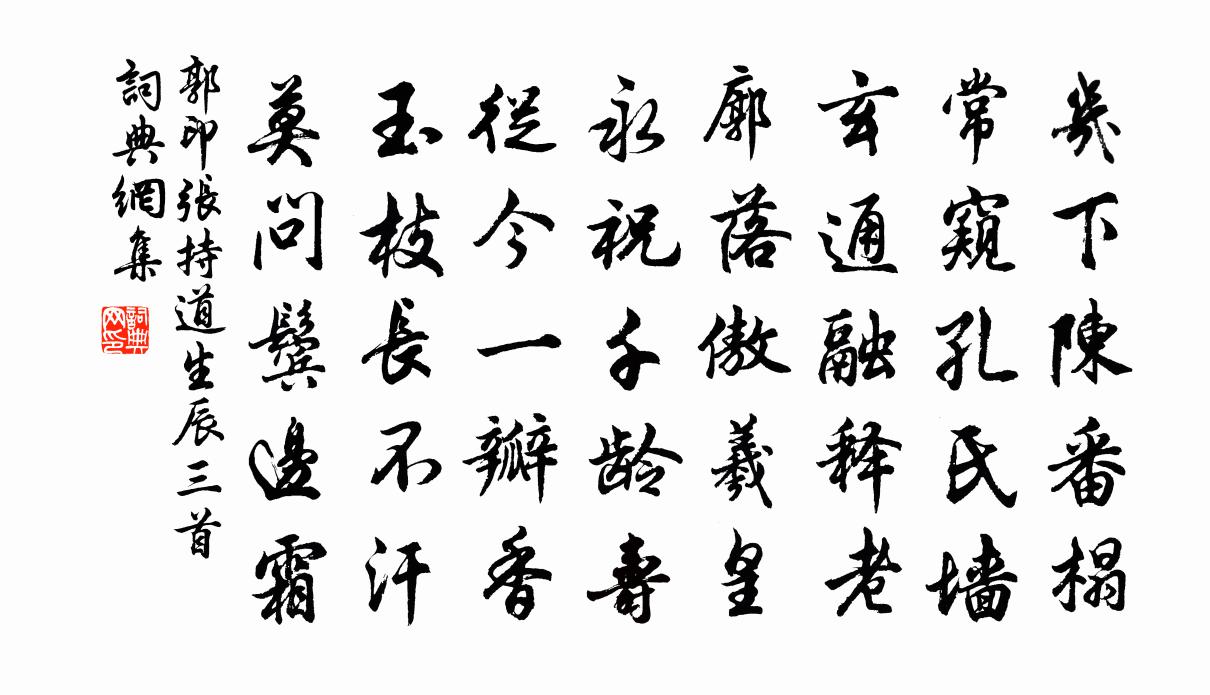 幾下陳番榻
常窺孔氏墙
玄通融释老
廓落傲羲皇
永祝千龄壽
從今一瓣香
玉枝長不汗
莫問鬢邊霜
郭印張持道生辰三首
詞典網集
詞典网印